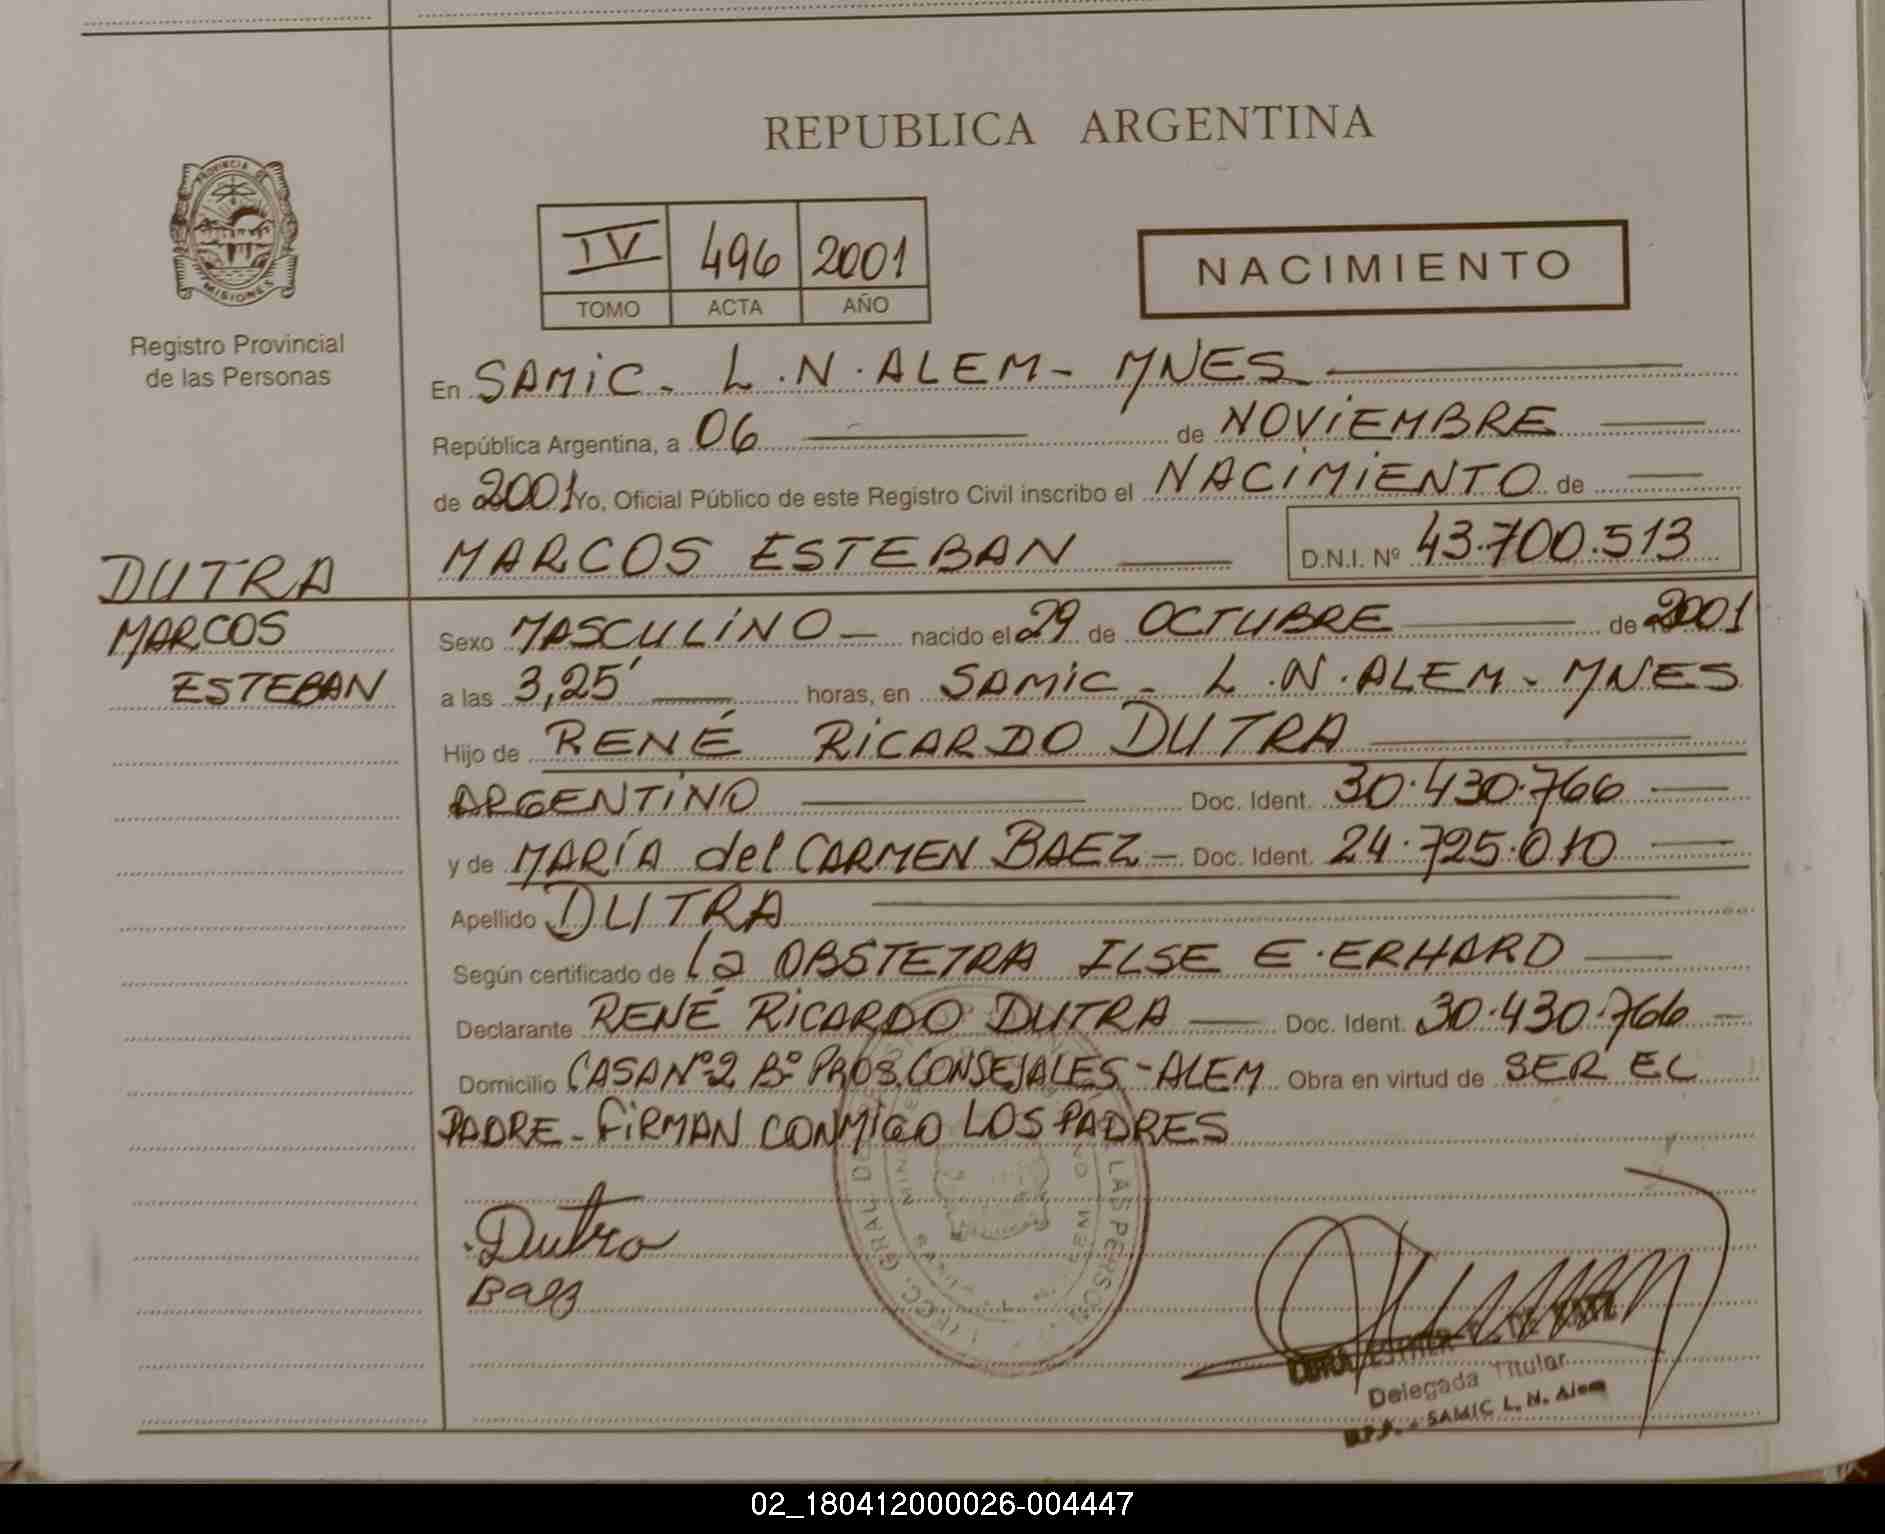 REPUBLICA ARGENTINA
PROVINCIA DE
MISIONES
Registro Provincial
de las Personas
IV 496 2001
TOMO ACTA AÑO
NACIMIENTO
En SAMIC - L.N. ALEM - MNES
República Argentina, a 06 de NOVIEMBRE
de 2001 Yo, Oficial Público de este Registro Civil inscribo el NACIMIENTO de
MARCOS ESTEBAN D.N.I. Nº 43.700.513
DUTRA
MARCOS
ESTEBAN
Sexo MASCULINO - nacido el 29 de OCTUBRE de 2001
a las 3,25' horas, en SAMIC - L.N. ALEM - MNES
Hijo de RENÉ RICARDO DUTRA
ARGENTINO Doc. Ident. 30.430.766
y de MARÍA del CARMEN BAEZ - Doc. Ident. 24.725.010
Apellido DUTRA
Según certificado de la OBSTETRA ILSE E. ERHARD
Declarante RENÉ RICARDO DUTRA Doc. Ident. 30.430.766
Domicilio CASA Nº 2 Bº PROS. CONSEJALES - ALEM Obra en virtud de SER EL
PADRE - FIRMAN CONMIGO LOS PADRES
Dutra
Baez
GRAL. DE LAS PERSON
Delegada Titular
SAMIC L. N. Alem
02_180412000026-004447